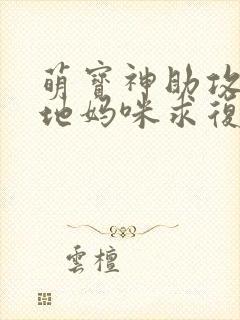 萌寶神助攻
地媽咪求復
雲檀